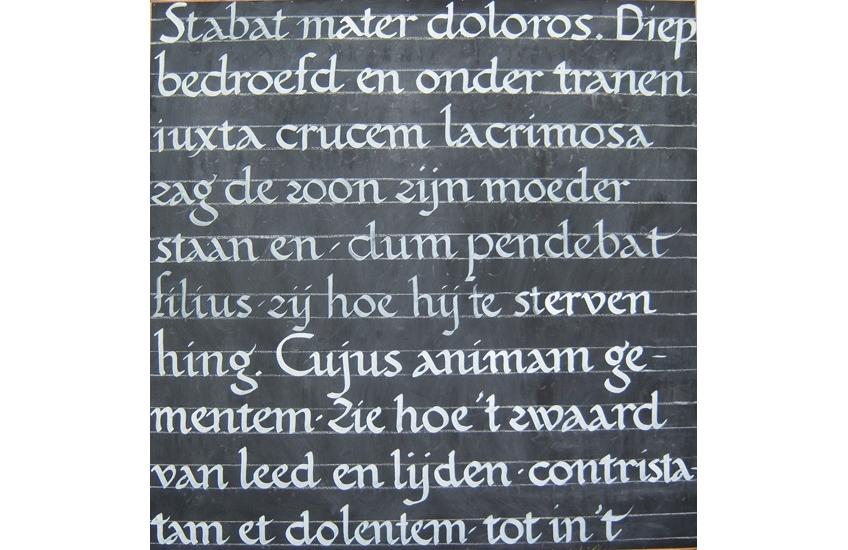 Stabat mater doloros. Diep
bedroefd en onder tranen
iuxta crucem lacrimosa
zag de zoon zijn moeder
staan en - dum pendebat
filius - zij hoe hij te sterven
hing. Cujus animam ge-
mentem - Zie hoe 't zwaard
van leed en lijden - contrista-
tam et dolentem - tot in 't